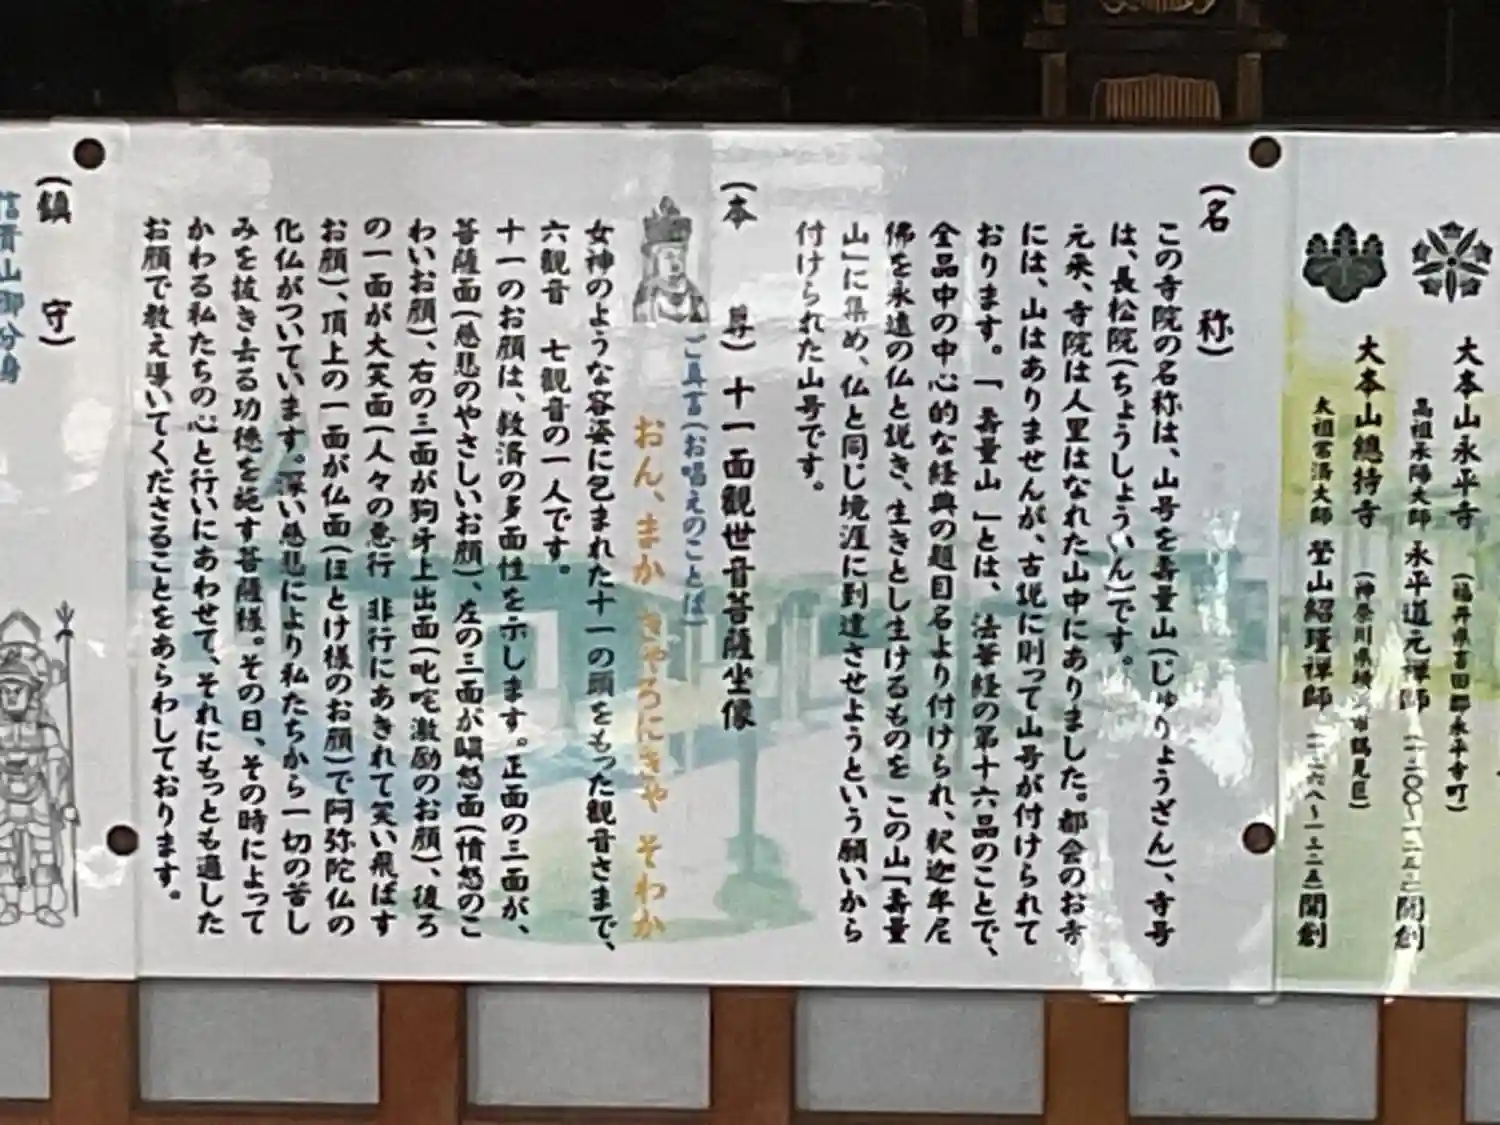 大本山永平寺
(福井県吉田郡永平寺町)
高祖承陽大師 永平道元禅師
開創
大本山總持寺
(神奈川県横浜市鶴見区)
太祖常済大師 瑩山紹瑾禅師
開創
(名称)
この寺院の名称は、山号を壽量山(じゅりょうざん)、寺号
は、長松院(ちょうしょういん)です。
元来、寺院は人里はなれた山中にありました。都会のお寺
には、山はありませんが、古説に則って山号が付けられて
おります。「壽量山」とは、法華経の第十六品のことで、
全品中の中心的な経典の題目名より付けられ、釈迦牟尼
佛を永遠の仏と説き、生きとし生けるものを この山「壽量
山」に集め、仏と同じ境涯に到達させようという願いから
付けられた山号です。
(本尊)十一面観世音菩薩坐像
ご真言(お唱えのことば)
おん、まか きゃろにきや そわか
女神のような容姿に包まれた十一の頭をもった観音さまで、
六観音 七観音の一人です。
十一のお顔は、救済の多面性を示します。正面の三面が、
菩薩面(慈悲のやさしいお顔)、左の三面が瞋怒面(憤怒のこ
わいお顔)、右の三面が狗牙上出面(叱咤激励のお顔)、後ろ
の一面が大笑面(人々の悪行 非行にあきれて笑い飛ばす
お顔)、頂上の一面が仏面(ほとけ様のお顔)で阿弥陀仏の
化仏がついています。深い慈悲により私たちから一切の苦し
みを抜き去る功徳を施す菩薩様。その日、その時によって
かわる私たちの心と行いにあわせて、それにもっとも適した
お顔で教え導いてくださることをあらわしております。
(鎮守)
山御分身